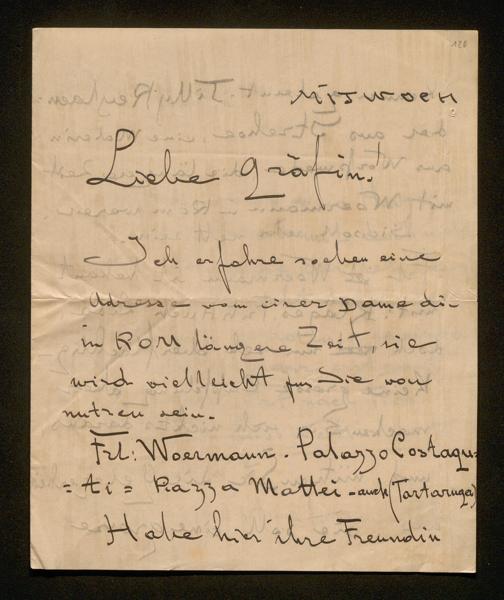 120
Mitwoch
Liebe Gräfin!
Ich erfahre soeben eine
Adresse vom einer Dame die
in ROM längere Zeit, sie
wird vielleicht fur Sie von
nutzen sein.
Frl: Woermann - Palazzo Costagu=
= ti = Piazza Mattei - auch (Tartaruga)
Habe hier ihre Freundin